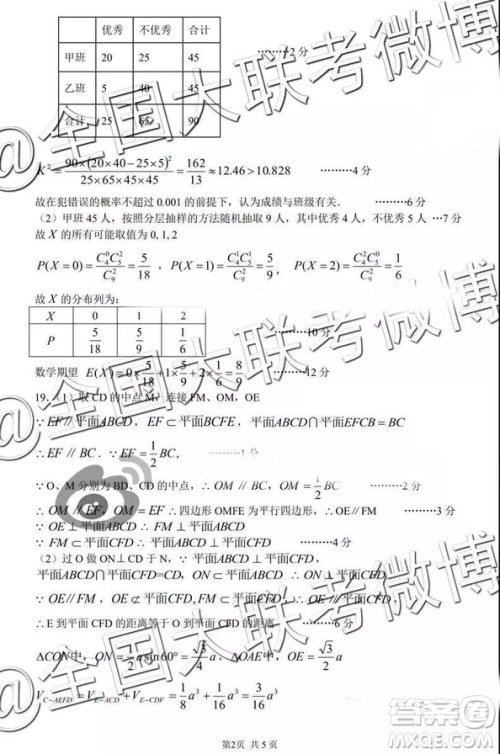 优秀 不优秀 合计
甲班 20 25 45
乙班 5 40 45
合计 25 65 90
………2分
K² = 90×(20×40−25×5)² / 25×65×45×45 = 162/13 ≈ 12.46 > 10.828 ………4分
故在犯错误的概率不超过 0.001 的前提下，认为成绩与班级有关. ………6分
（2）甲班 45 人，按照分层抽样的方法随机抽取 9 人，其中优秀 4 人，不优秀 5 人 …7分
故 X 的所有可能取值为 0, 1, 2
P(X=0) = C₄⁰C₅²/C₉² = 5/18 ，P(X=1) = C₄¹C₅¹/C₉² = 5/9 ，P(X=2) = C₄²C₅⁰/C₉² = 1/6
故 X 的分布列为：
X 0 1 2
P 5/18 5/9 1/6
………10分
数学期望 E(X) = 0×5/18 + 1×5/9 + 2×1/6 = 8/9 ………12分
19.（1）取 CD 的中点 M，连接 FM、OM，OE
∵ EF // 平面ABCD，EF ⊂ 平面BCFE，平面ABCD∩平面EFCB = BC
∴ EF // BC，∵ EF = 1/2 BC， 1分
∵ O、M 分别为 BD、CD 的中点，∴ OM // BC，OM = 1/2 BC ………2分
∴ OM // EF，OM = EF ∴ 四边形 OMFE 为平行四边形，∴OE // FM
∵ OE ⊥ 平面ABCD ∴ FM ⊥ 平面ABCD
∵ FM ⊂ 平面CFD ∴ 平面CFD ⊥ 平面ABCD ………4分
（2）过 O 做 ON⊥CD 于 N，∵ 平面ABCD ⊥ 平面CFD，
平面ABCD∩平面CFD=CD，ON ⊂ 平面ABCD ∴ ON ⊥ 平面CFD
∵ OE // FM，OE ⊄ 平面CFD，FM ⊂ 平面CFD ∴ OE // 平面CFD
∴ E 到平面 CFD 的距离等于 O 到平面 CFD 的距离 ………6分
ΔCON中，ON = 1/2 a sin60° = √3/4 a，ΔOAE中，OE = √3/2 a
V_{C−AEFD} = V_{E−ACD} + V_{E−CDF} = 1/8 a³ + 1/16 a³ = 3/16 a³
第2页 共5页
@全国大联考微博
@全国大联考微博
@全国大联考微博
答案圈
MXQE.COM